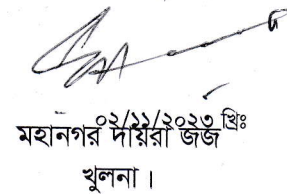 ০২/১১/২০২৩ খ্রিঃ
মহানগর দায়রা জজ
খুলনা।